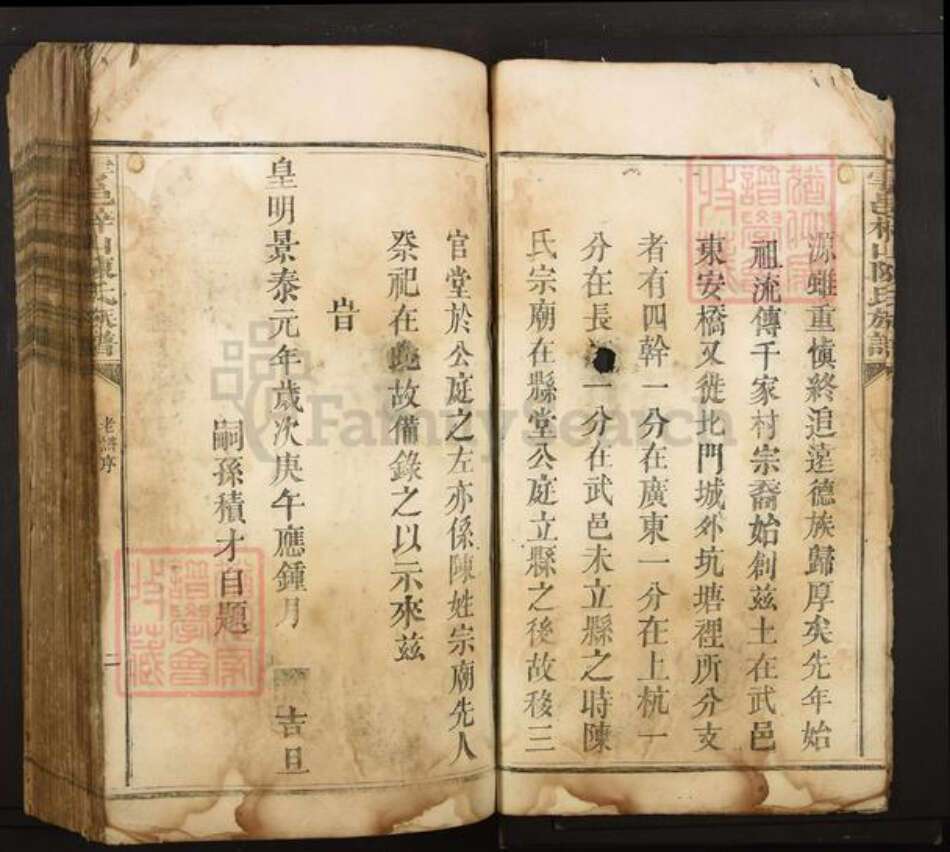 源雖重慎終追遠德族歸厚矣先年始
祖流傳千家村宗裔始創茲土在武邑
東安橋又從北門城外坑塘裡所分支
者有四幹一分在廣東一分在上杭一
分在長一分在武邑未立縣之時陳
氏宗廟在縣堂公庭立縣之後故移三
官堂於公庭之左亦係陳姓宗廟先人
祭祀在故備錄之以示來茲
旹
皇明景泰元年歲次庚午應鍾月 吉旦
嗣孫積才自題
山陳氏族譜
老譜序
二
FamilySearch